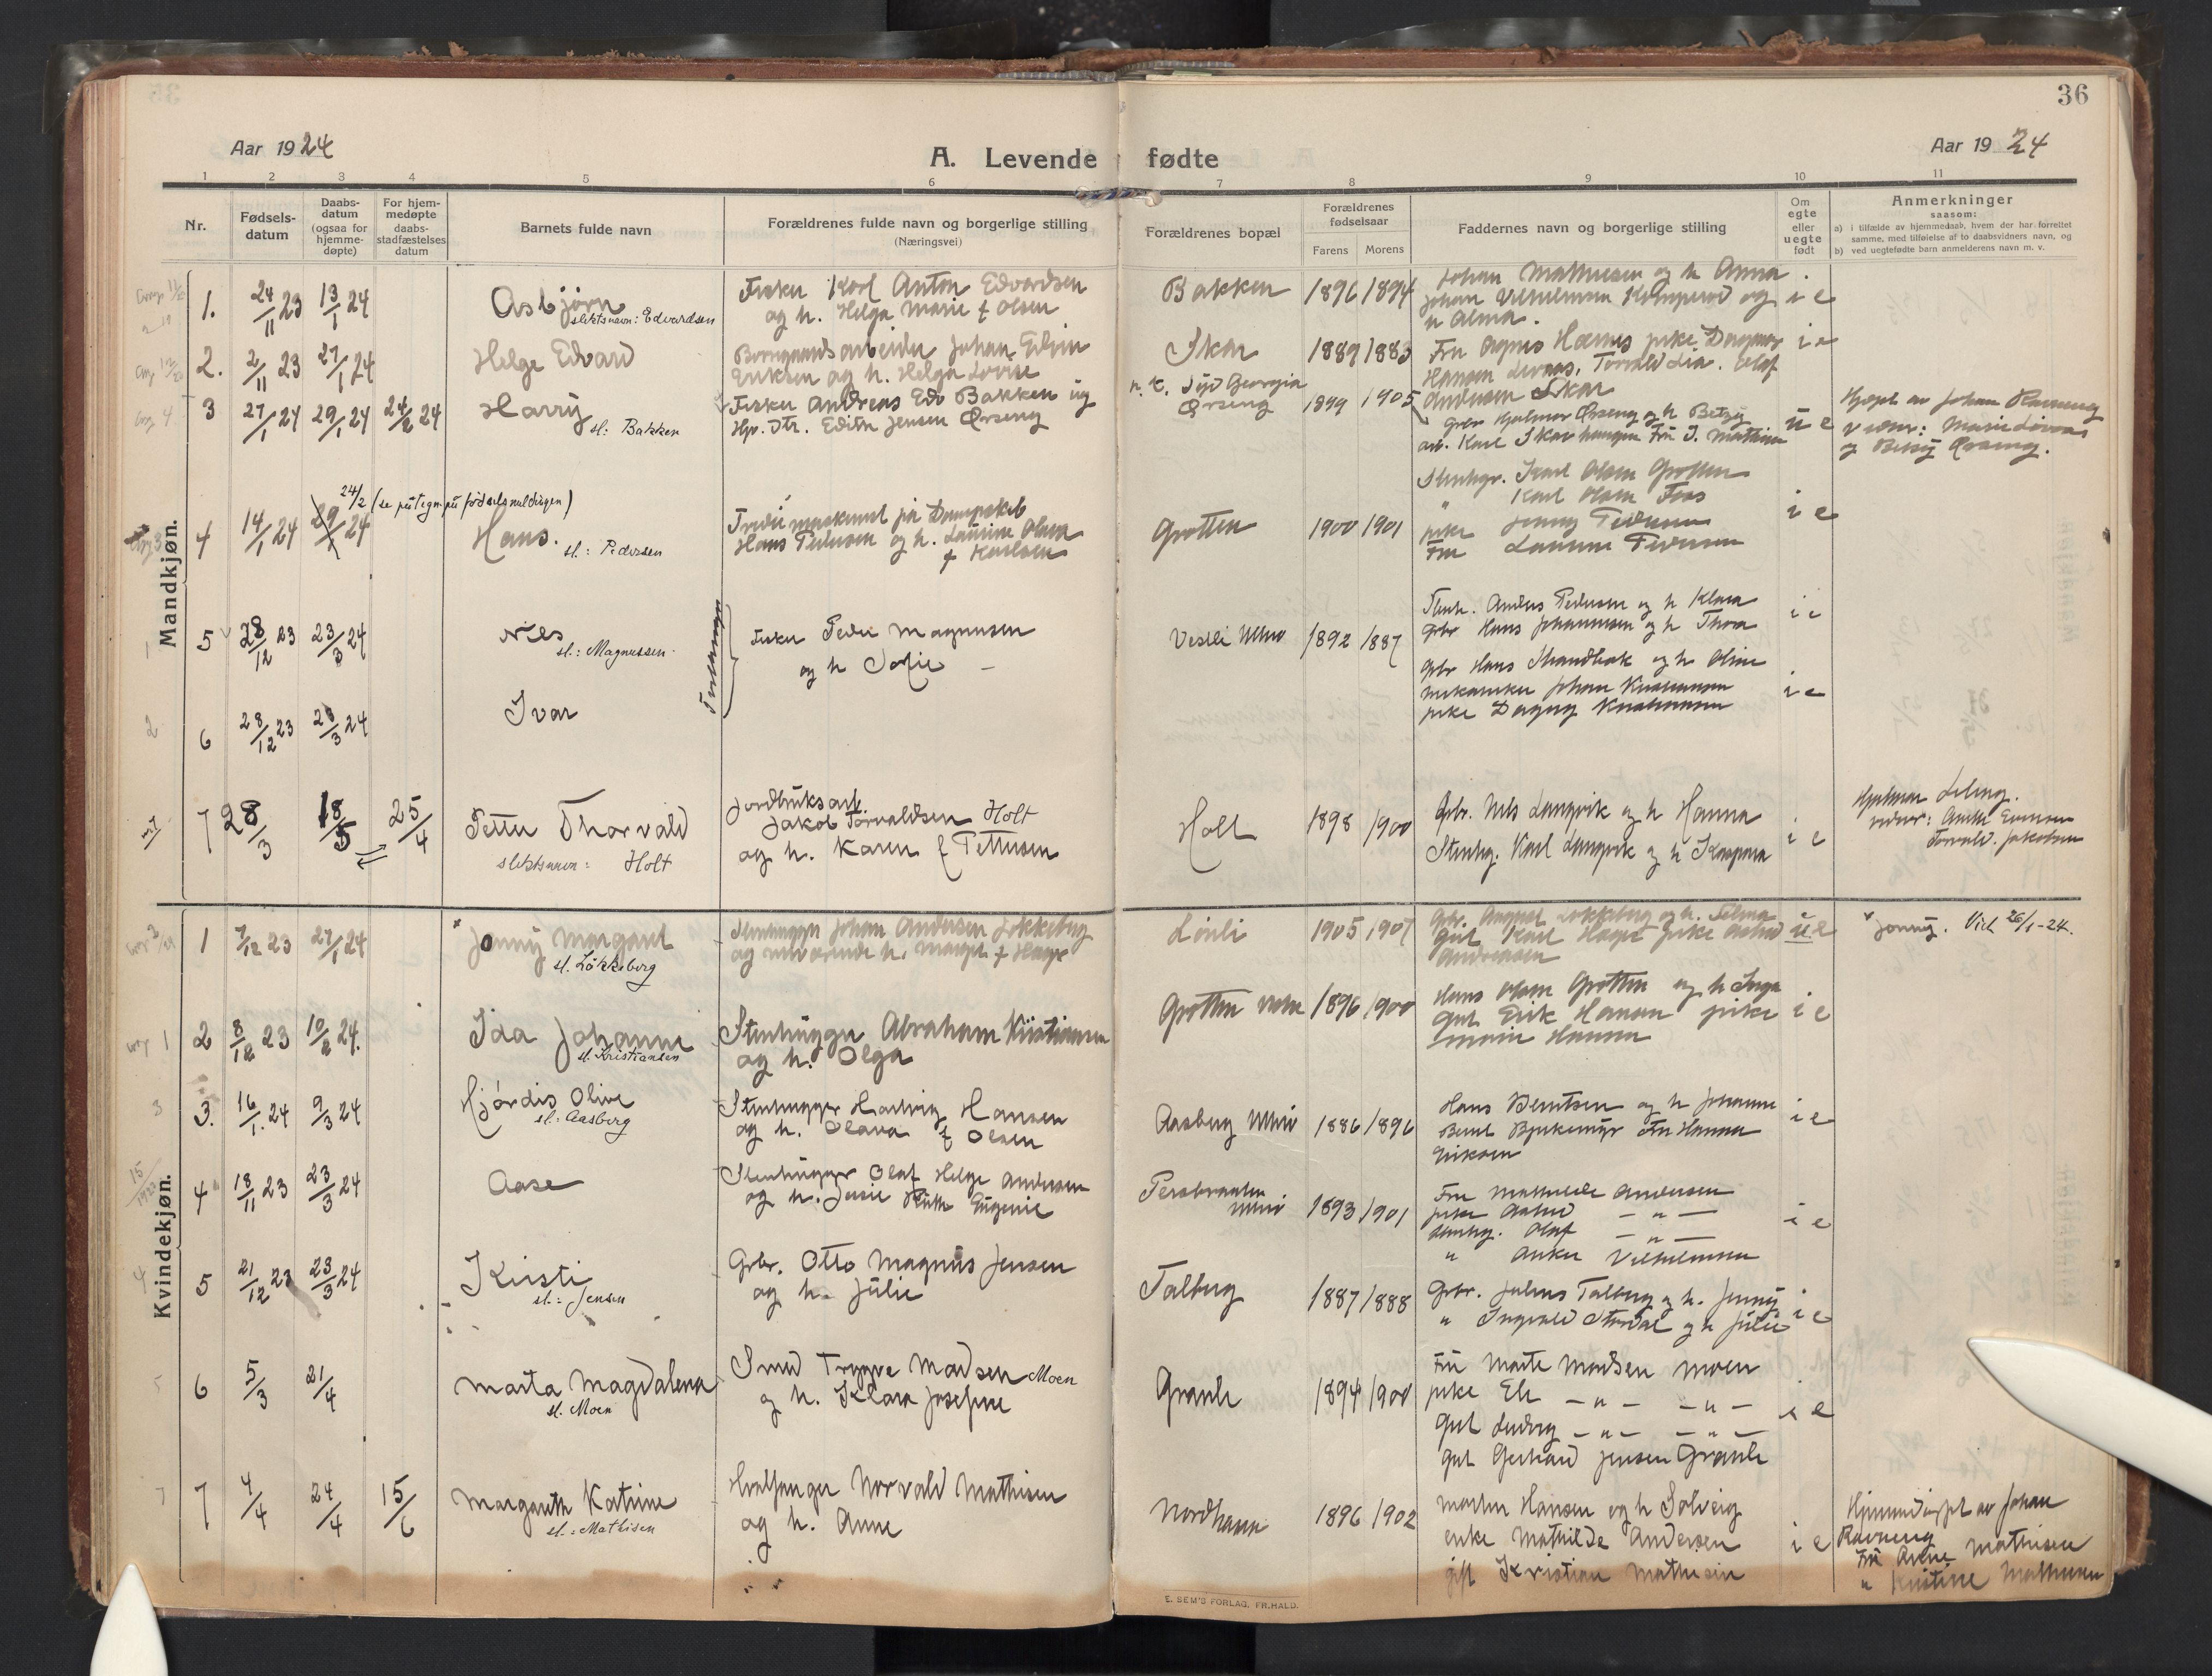 36
Aar 1924
A. Levende fødte
Aar 1924
1 2 3 4 5 6 7 8 9 10 11
Nr.
Fødsels-
datum
Daabs-
datum
(ogsaa for
hjemme-
døpte)
For hjem-
medøpte
daabs-
stadfæstelses
datum
Barnets fulde navn
Forældrenes fulde navn og borgerlige stilling
(Næringsvei)
Forældrenes bopæl
Forældrenes
fødselsaar
Farens Morens
Faddernes navn og borgerlige stilling
Om
egte
eller
uegte
født
Anmerkninger
saasom:
a) i tilfælde av hjemmedaab, hvem der har forrettet
samme, med tilføielse af to daabsvidners navn, og
b) ved uegtefødte barn anmelderens navn m. v.
Mandkjøn.
1. 24/11 23 13/1 24
Asbjørn
slektsnavn: Edvardsen
Fisker Karl Anton Edvardsen
og h. Helga Marie f Olsen
Bakken 1896 1894
Johan Mathiesen og h Anna.
Johan Vilhelmsen og
h Alma.
i e
2. 2/11 23 27/1 24
Helge Edvard
arbeider Johan Edvin
Eriksen og h. Helga Lovise
Skar 1889 1883
Fru Agnes pike Dagmar
Hansen Torvald Lia. Olaf
Andersen Skar
i e
3 27/1 24 29/1 24 24/2 24
Harry
sl: Bakken
Fisker Andreas Edv Bakken ug
Hpr. Dtr. Edith Jensen Ørseng
n. t. Syd Georgia
Ørseng 1899 1905
Gbr Hjalmar Ørseng og h Betzy
arb. Karl Skarhaugen Fru J. Mathisen
u e
Hjdpt av Johan Ravneng
vidner: Marie
og Betsy Ørseng.
4 14/1 24 29/1 24
24/2 (se påtegn. på fødselsmeldingen)
Hans.
sl: Pedersen
Tredie maskinist på Dampskib
Hans Pedersen og h. Laurine Olava
f Karlsen
Grotten 1900 1901
Stenhgr. Karl Olsen Grotten
" Karl Olsen Foss
pike Jenny Pedersen
Fru Laurine Pedersen
i e
5 28/12 23 23/3 24
Nils
sl.: Magnussen
Fisker Peder Magnussen
og h Sofie –
1892 1887
Stenh. Anders Pedersen og h Klara
Gbr Hans Johannesen og h Thora
i e
6 28/12 23 23/3 24
Ivar
Gbr Hans Strandbak og h Oline
mekaniker Johan Kristiansen
pike Dagny Kristiansen
i e
7 28/3 18/5 25/4
Petter Thorvald
slektsnavn: Holt
Jordbruksarb.
Jakob Torvaldsen Holt
og h. Karen f Pettersen
Holt 1898 1900
Gbr. Nils Langvik og h Hanna
Stenhg. Karl Langvik og h Kaspara
i e
Hjalmar
vidner:
Torvald. Jakobsen
Kvindekjøn.
1 7/12 23 27/1 24
* Jonny Margaret
sl. Løkkeberg
Stenhugger Johan Andersen Løkkeberg
og nuværende h. Margit f Hauge
Lønli 1905 1907
Gbr. August Løkkeberg og h. Selma
gut Karl Hauge pike Astrid
Andreasen
u e
* Jonny. Vid 26/1-24.
2 8/12 23 10/2 24.
Ida Johanne
sl. Kristiansen
Stenhugger Abraham Kristiansen
og h. Olga
Grotten 1896 1900
Hans Olsen Grotten og h Inga
Gut Erik Hansen pike
Marie Hansen
i e
3. 16/1. 24 9/3 24
Hjørdis Olive
sl: Aasberg
Stenhugger Hartvig Hansen
og h. Olava f Olsen
Aasberg 1886 1896
Hans Berntsen og h Johanne
Bernt Bjerkemyr Fru Hanna
Eriksen
i e
4 18/11 23 23/3 24
Aase
Stenhugger Olaf Helge Andersen
og h. Jenie Ruth Eugenie
1893 1901
Fru Mathilde Andersen
pike Astrid – " –
stenhg. Olaf – " –
" Anker Vilhelmsen
i e
5 21/12 23 23/3 24
Kirsti
sl.: Jensen
Gbr. Otto Magnus Jensen
og h. Julie
Talberg 1887 1888
Gbr. Julius Talberg og h. Jenny
" Ingvald Stordal og h Julie
i e
6 5/3 21/4
Marta Magdalena
sl. Moen
Smed Trygve Madsen Moen
og h. Klara Josefine
Graali 1894 1900
Fru Marte Madsen Moen
pike Eli – " – – " –
Gut Ludvig – " – – " –
Gut Gerhard Jensen Graali
i e
7 4/4 24/4 15/6
Margareth Katrine
sl.: Mathisen
Hvalfanger Norvald Mathisen
og h. Anne
Nordhavn 1896 1902
Martin Hansen og h Solveig
enke Mathilde Andersen
gift Kristian Mathisen
i e
Hjemmedøpt av Johan
Ravneng
Fru Anne Mathisen
" Kristine Mathisen
E. SEM'S FORLAG, FR.HALD.